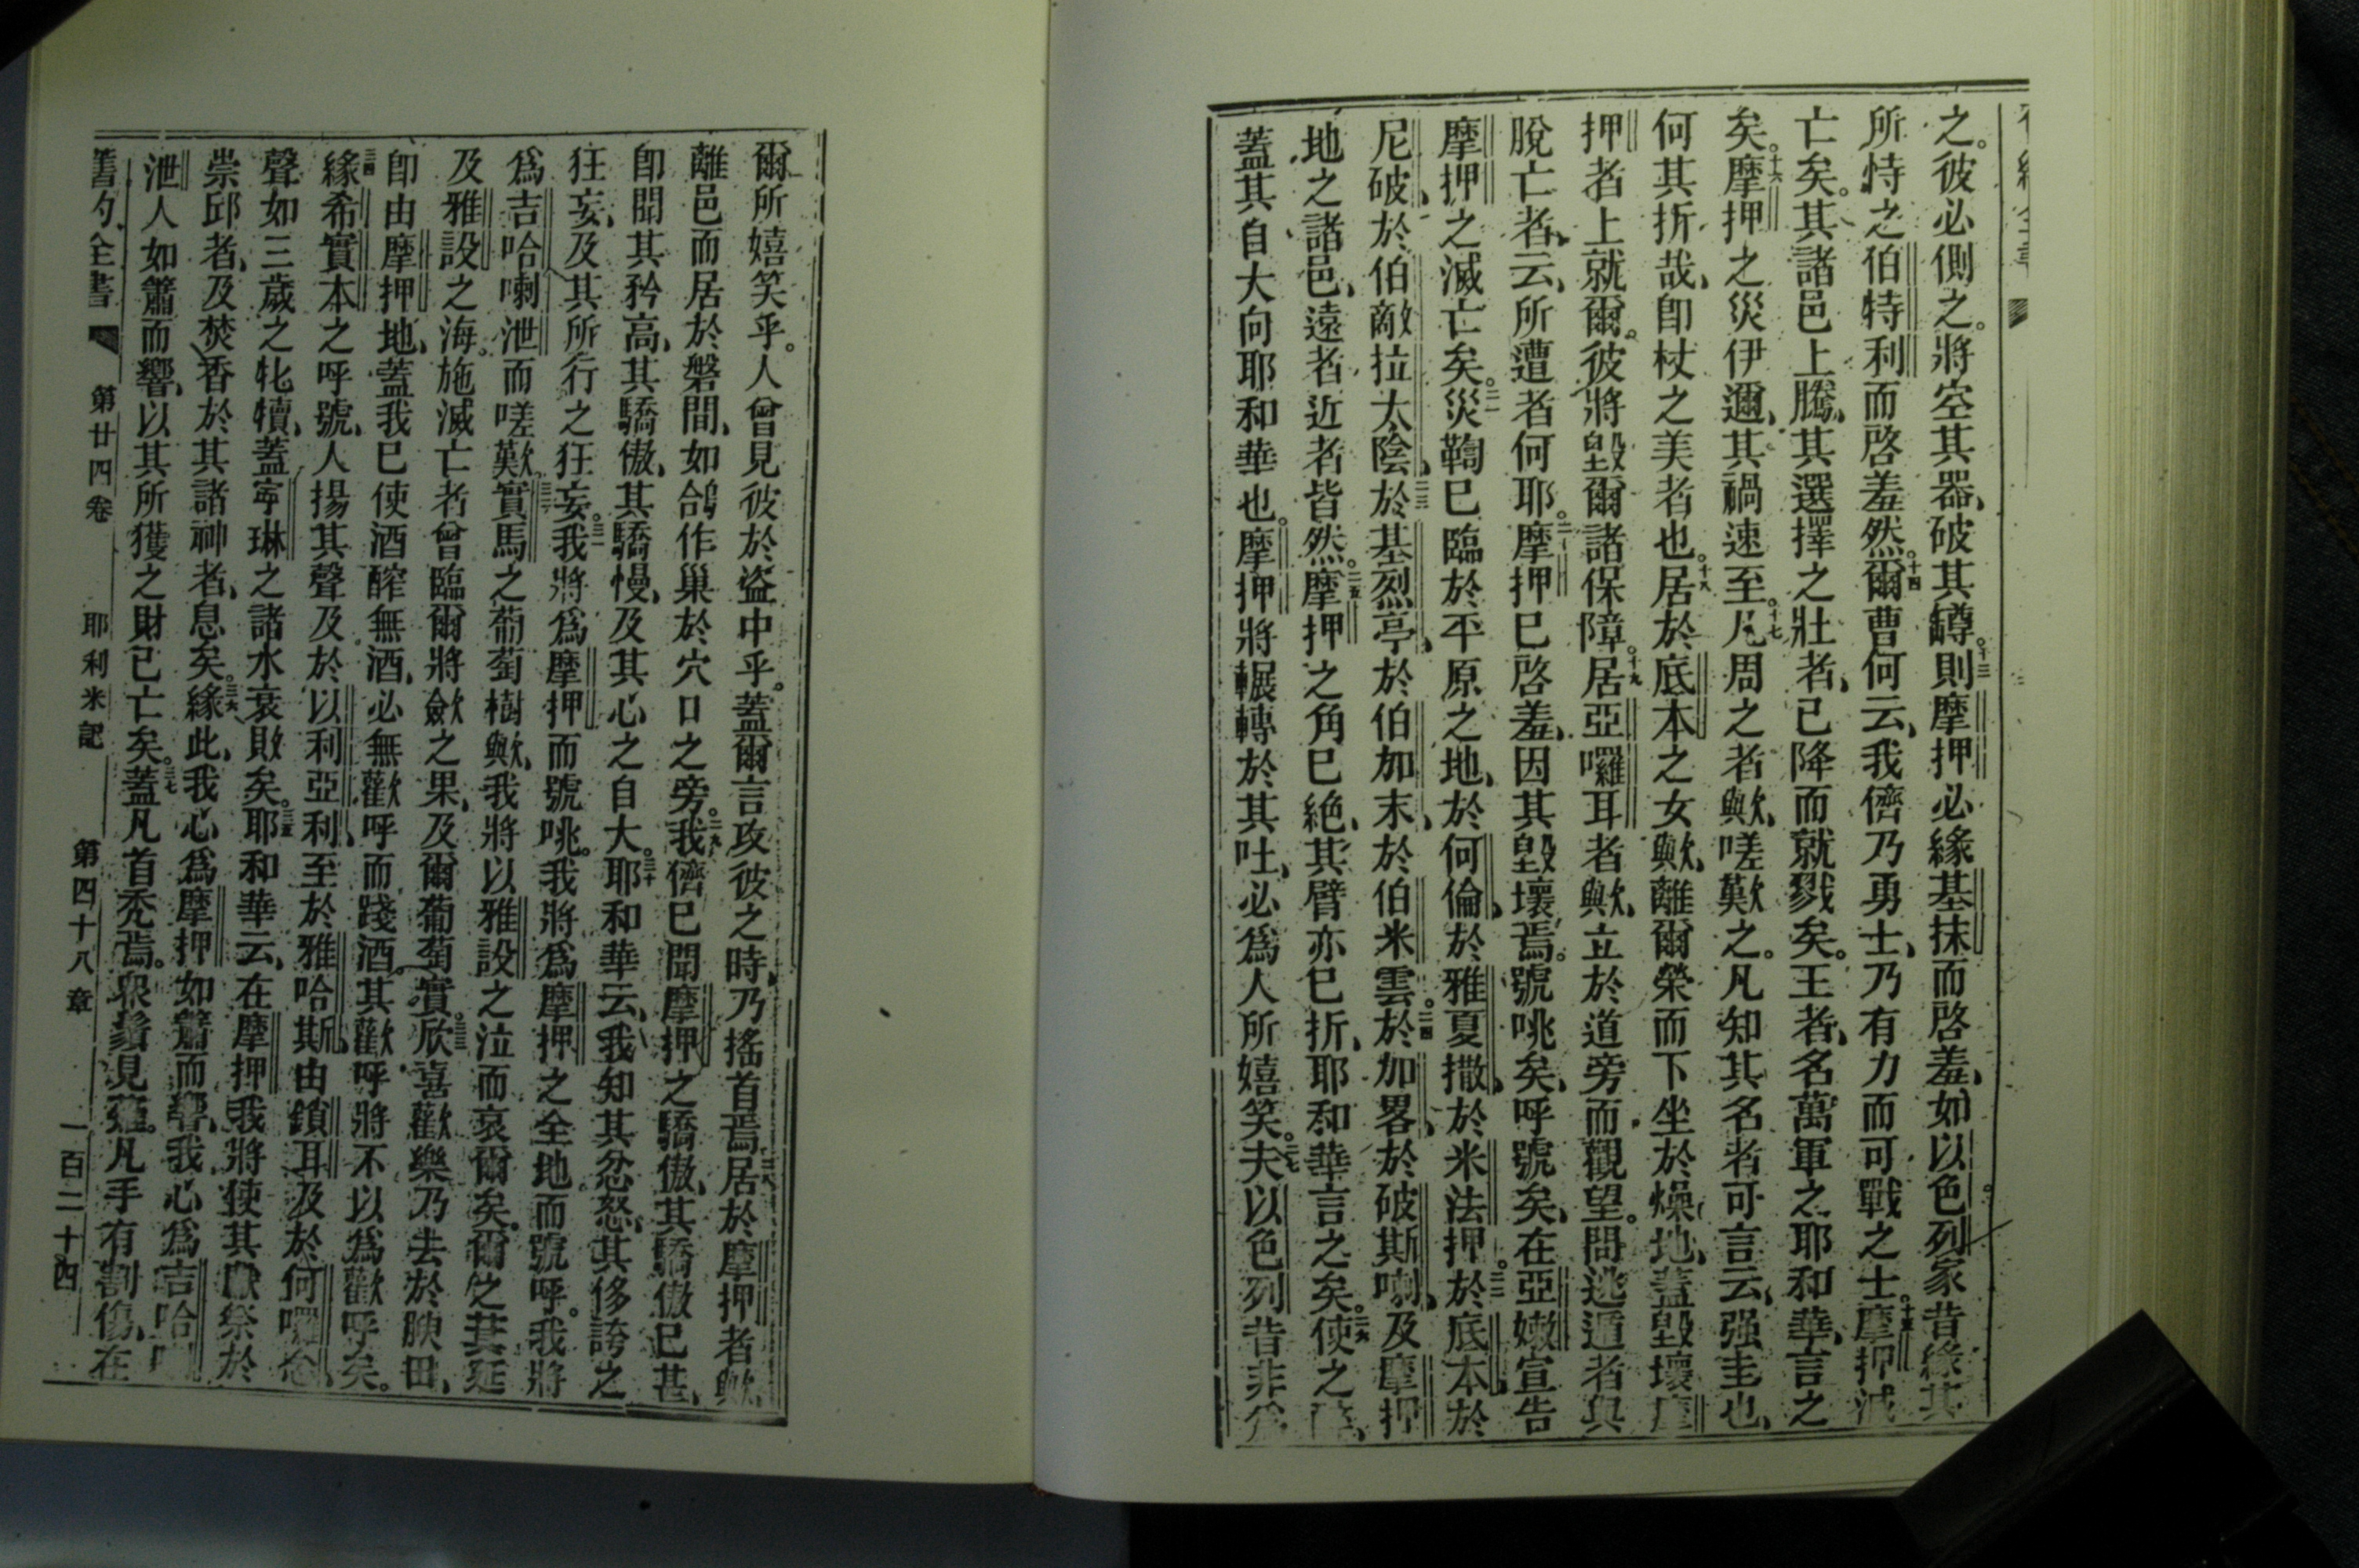 之。彼必側之。將空其器、破其罇。十三則摩押必緣基抹而啓羞、如以色列家昔緣其
所恃之伯特利而啓羞然。十四爾曹何云、我儕乃勇士、乃有力而可戰之士。十五摩押滅
亡矣。其諸邑上騰、其選擇之壯者、已降而就戮矣。王者、名萬軍之耶和華、言之
矣。十六摩押之災伊邇、其禍速至。十七凡周之者歟、嗟歎之。凡知其名者可言云、强圭也、
何其折哉、卽杖之美者也。十八居於底本之女歟、離爾榮而下坐於燥地、蓋毀壞摩
押者上就爾。彼將毀爾諸保障。十九居亞囉耳者歟、立於道旁而觀望。問逃遁者與
脫亡者、云、所遭者何耶。二十摩押已啓羞、因其毀壞焉。號咷矣、呼號矣、在亞嫩宣告
摩押之滅亡矣。二一災鞫已臨於平原之地、於何倫、於雅夏撒、於米法押。二二於底本、於
尼破、於伯敵拉太陰、二三於基烈亭、於伯加末、於伯米雲。二四於加畧、於破斯喇、及摩押
地之諸邑、遠者近者皆然。二五摩押之角已絕、其臂亦已折、耶和華言之矣。二六使之
蓋其自大向耶和華也。摩押將輾轉於其吐、必爲人所嬉笑。二七夫以色列昔非爲
爾所嬉笑乎。人曾見彼於盜中乎。蓋爾言攻彼之時、乃搖首焉。二八居於摩押者歟、
離邑而居於磐間、如鴿作巢於穴口之旁。二九我儕已聞摩押之驕傲、其驕傲已甚、
卽聞其矜高、其驕傲、其驕慢、及其心之自大。三十耶和華云、我知其忿怒、其侈誇之
狂妄、及其所行之狂妄。三一我將爲摩押而號咷。我將爲摩押之全地而號呼。我將
爲吉哈喇泄而嗟歎。三二實馬之葡萄樹歟、我將以雅設之泣而哀爾矣。爾之其延
及雅設之海。施滅亡者曾臨爾將斂之果、及爾葡萄實。三三欣喜歡樂乃去於腴田、
卽由摩押地、蓋我已使酒醡無酒、必無歡呼而踐酒。其歡呼將不以爲歡呼矣。
三四緣希實本之呼號、人揚其聲及於以利亞利、至於雅哈斯、由鎖耳及於何囉念、
聲如三歲之牝犢、蓋寧琳之諸水衰敗矣。三五耶和華云、在摩押我將使其獻祭於
崇邱者、及焚香於其諸神者、息矣。三六緣此、我心爲摩押如簫而響、我心爲吉哈喇
泄人如簫而響、以其所獲之財已亡矣。三七蓋凡首禿焉。衆鬚見薙。凡手有割傷、在
舊約全書 第廿四卷 耶利米記 第四十八章 一百二十四